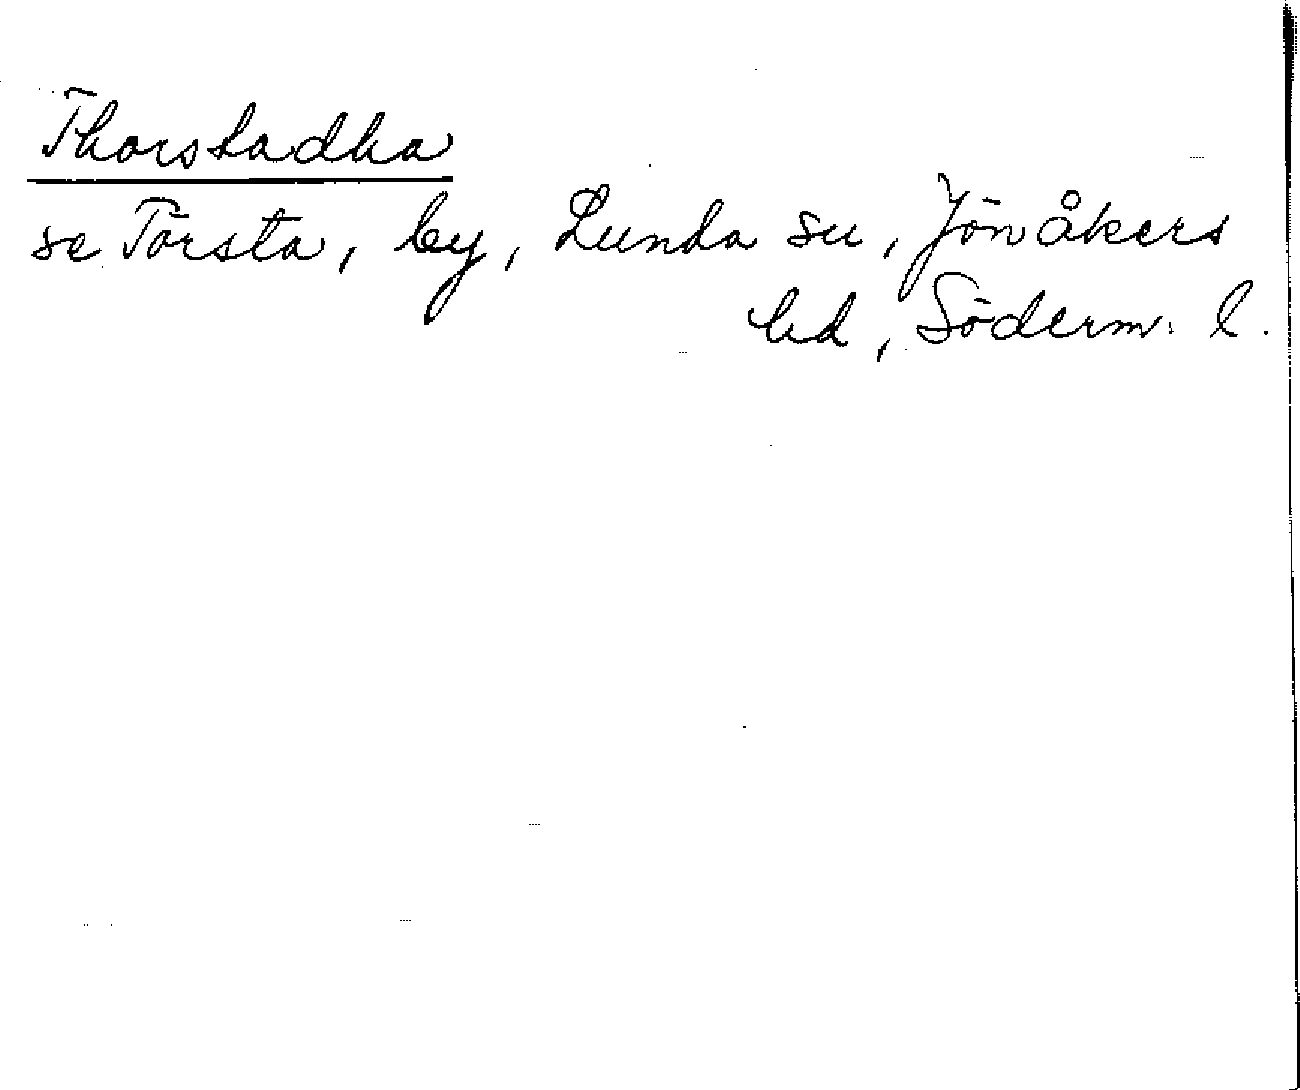 Thorstadha
se Torsta, by, Lunda sn, Jönåkers
hd, Söderm. l.